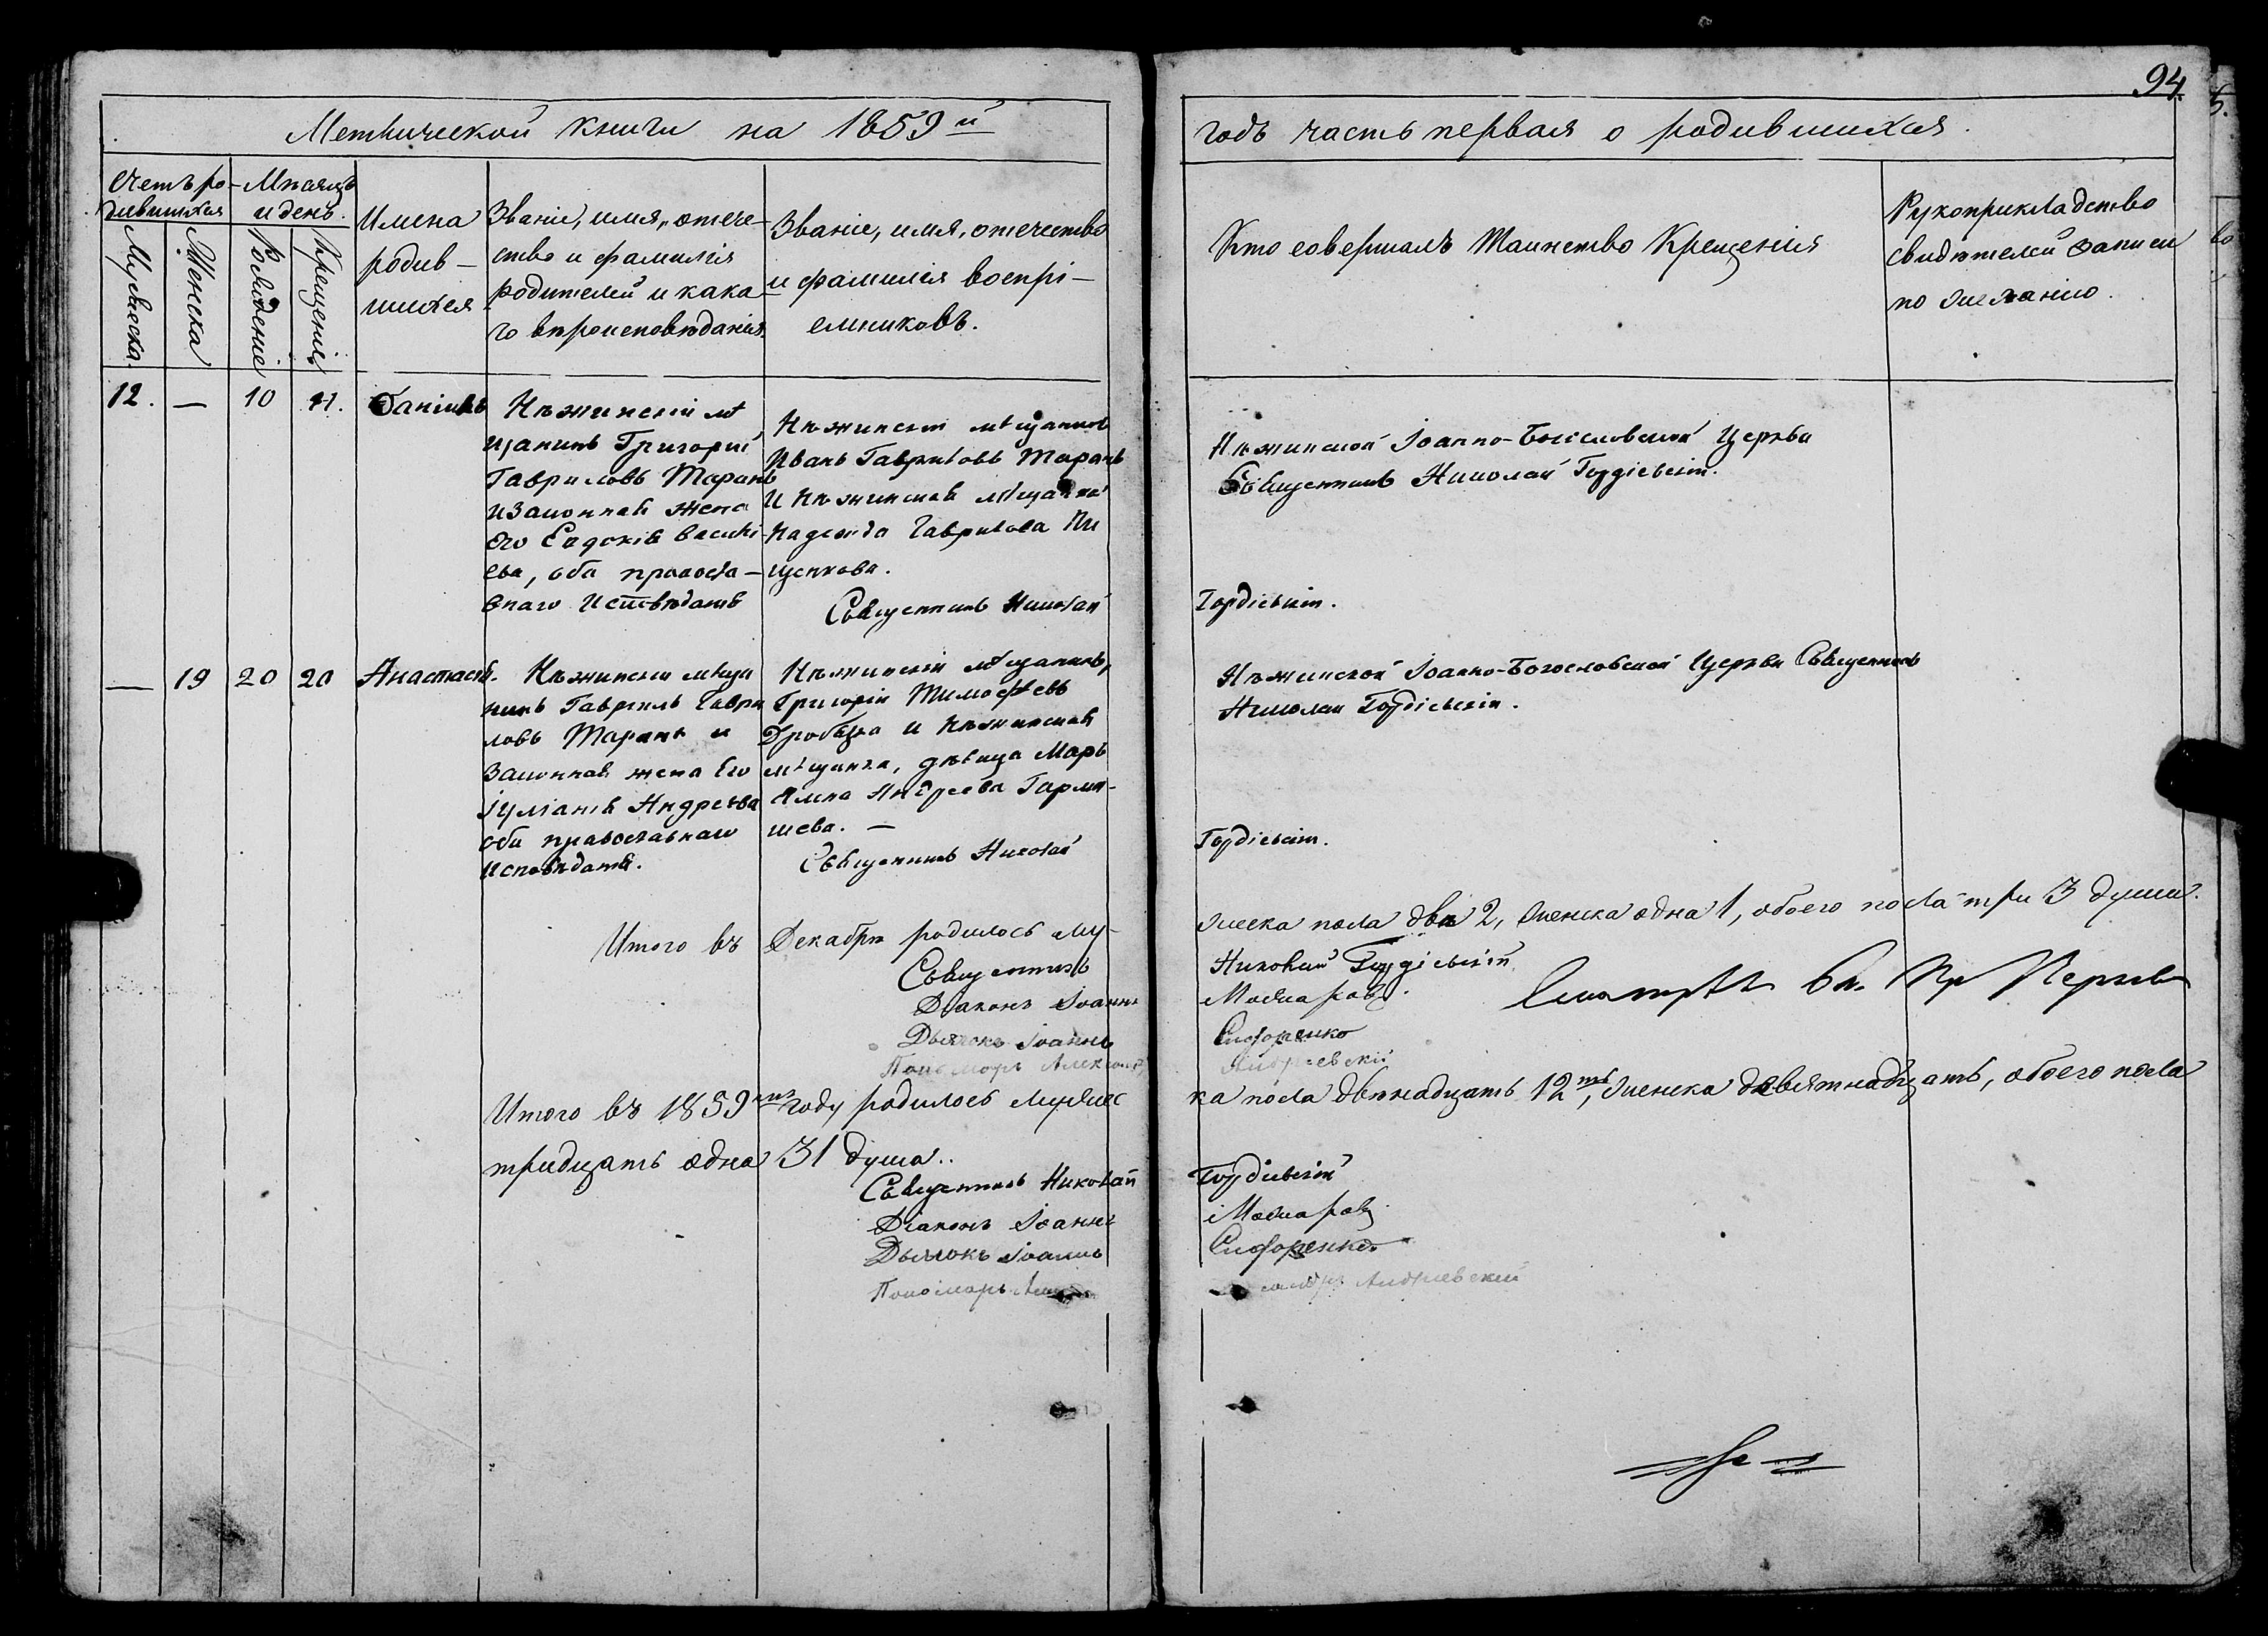 94.
Метрической книги на 1859й
годъ часть первая о родившихся.
Счетъ ро-
дившихся
Мѣсяцъ
и день.
Мужеска
Женска
Рожденіе
Крещеніе
Имена
родив-
шихся
Званіе, имя, отече-
ство и фамилія
родителей и кака-
го вѣроисповѣданія.
Званіе, имя, отечество
и фамилія воспрі-
емниковъ.
Кто совершалъ Таинство Крещенія
Рукоприкладство
свидѣтелей записи
по желанію.
12. — 10 11. Даніилъ
Нѣжинскій мѣ
щанинъ Григорій
Гавриловъ Таранъ
и Законная жена
его Евдокія Василі-
ева, оба православ-
наго Исповѣданія
Нѣжинскій мѣщанинъ
Иванъ Гавриловъ Таранъ
и Нѣжинская мѣщанка
Надежда Гаврилова
Священникъ Николай
Нѣжинской Іоанно-Богословской Церкви
Священникъ Николай Гордіевскій.
Гордіевскій.
— 19 20 20 Анастасія.
Нѣжинскій мѣща
нинъ Гавріилъ Гаври
ловъ Таранъ и
Законная жена Его
Іуліанія Андреева
оба православнаго
Исповѣданія.
Нѣжинскій мѣщанинъ,
Григорій Тимофѣевъ
и Нѣжинская
мѣщанка, дѣвица Марь
Андреева
шева. —
Священникъ Николай
Нѣжинской Іоанно-Богословской Церкви Священникъ
Николай Гордіевскій.
Гордіевскій.
Итого въ Декабрѣ родилось му-
жеска пола два 2, женска одна 1, обоего пола три 3 души.
Священникъ
Николай Гордіевскій
Діаконъ Іоаннъ
Дьячокъ Іоаннъ
Сидоренко
Пономарь Александръ
Андріевскій
Итого въ 1859мъ году родилось мужес
ка пола двѣнадцать 12ть, женска девятнадцать, обоего пола
тридцать одна 31 душа..
Священникъ Николай
Гордіевскій
Діаконъ Іоаннъ
Дьячокъ Іоаннъ
Сидоренко
Пономарь
Андріевскій